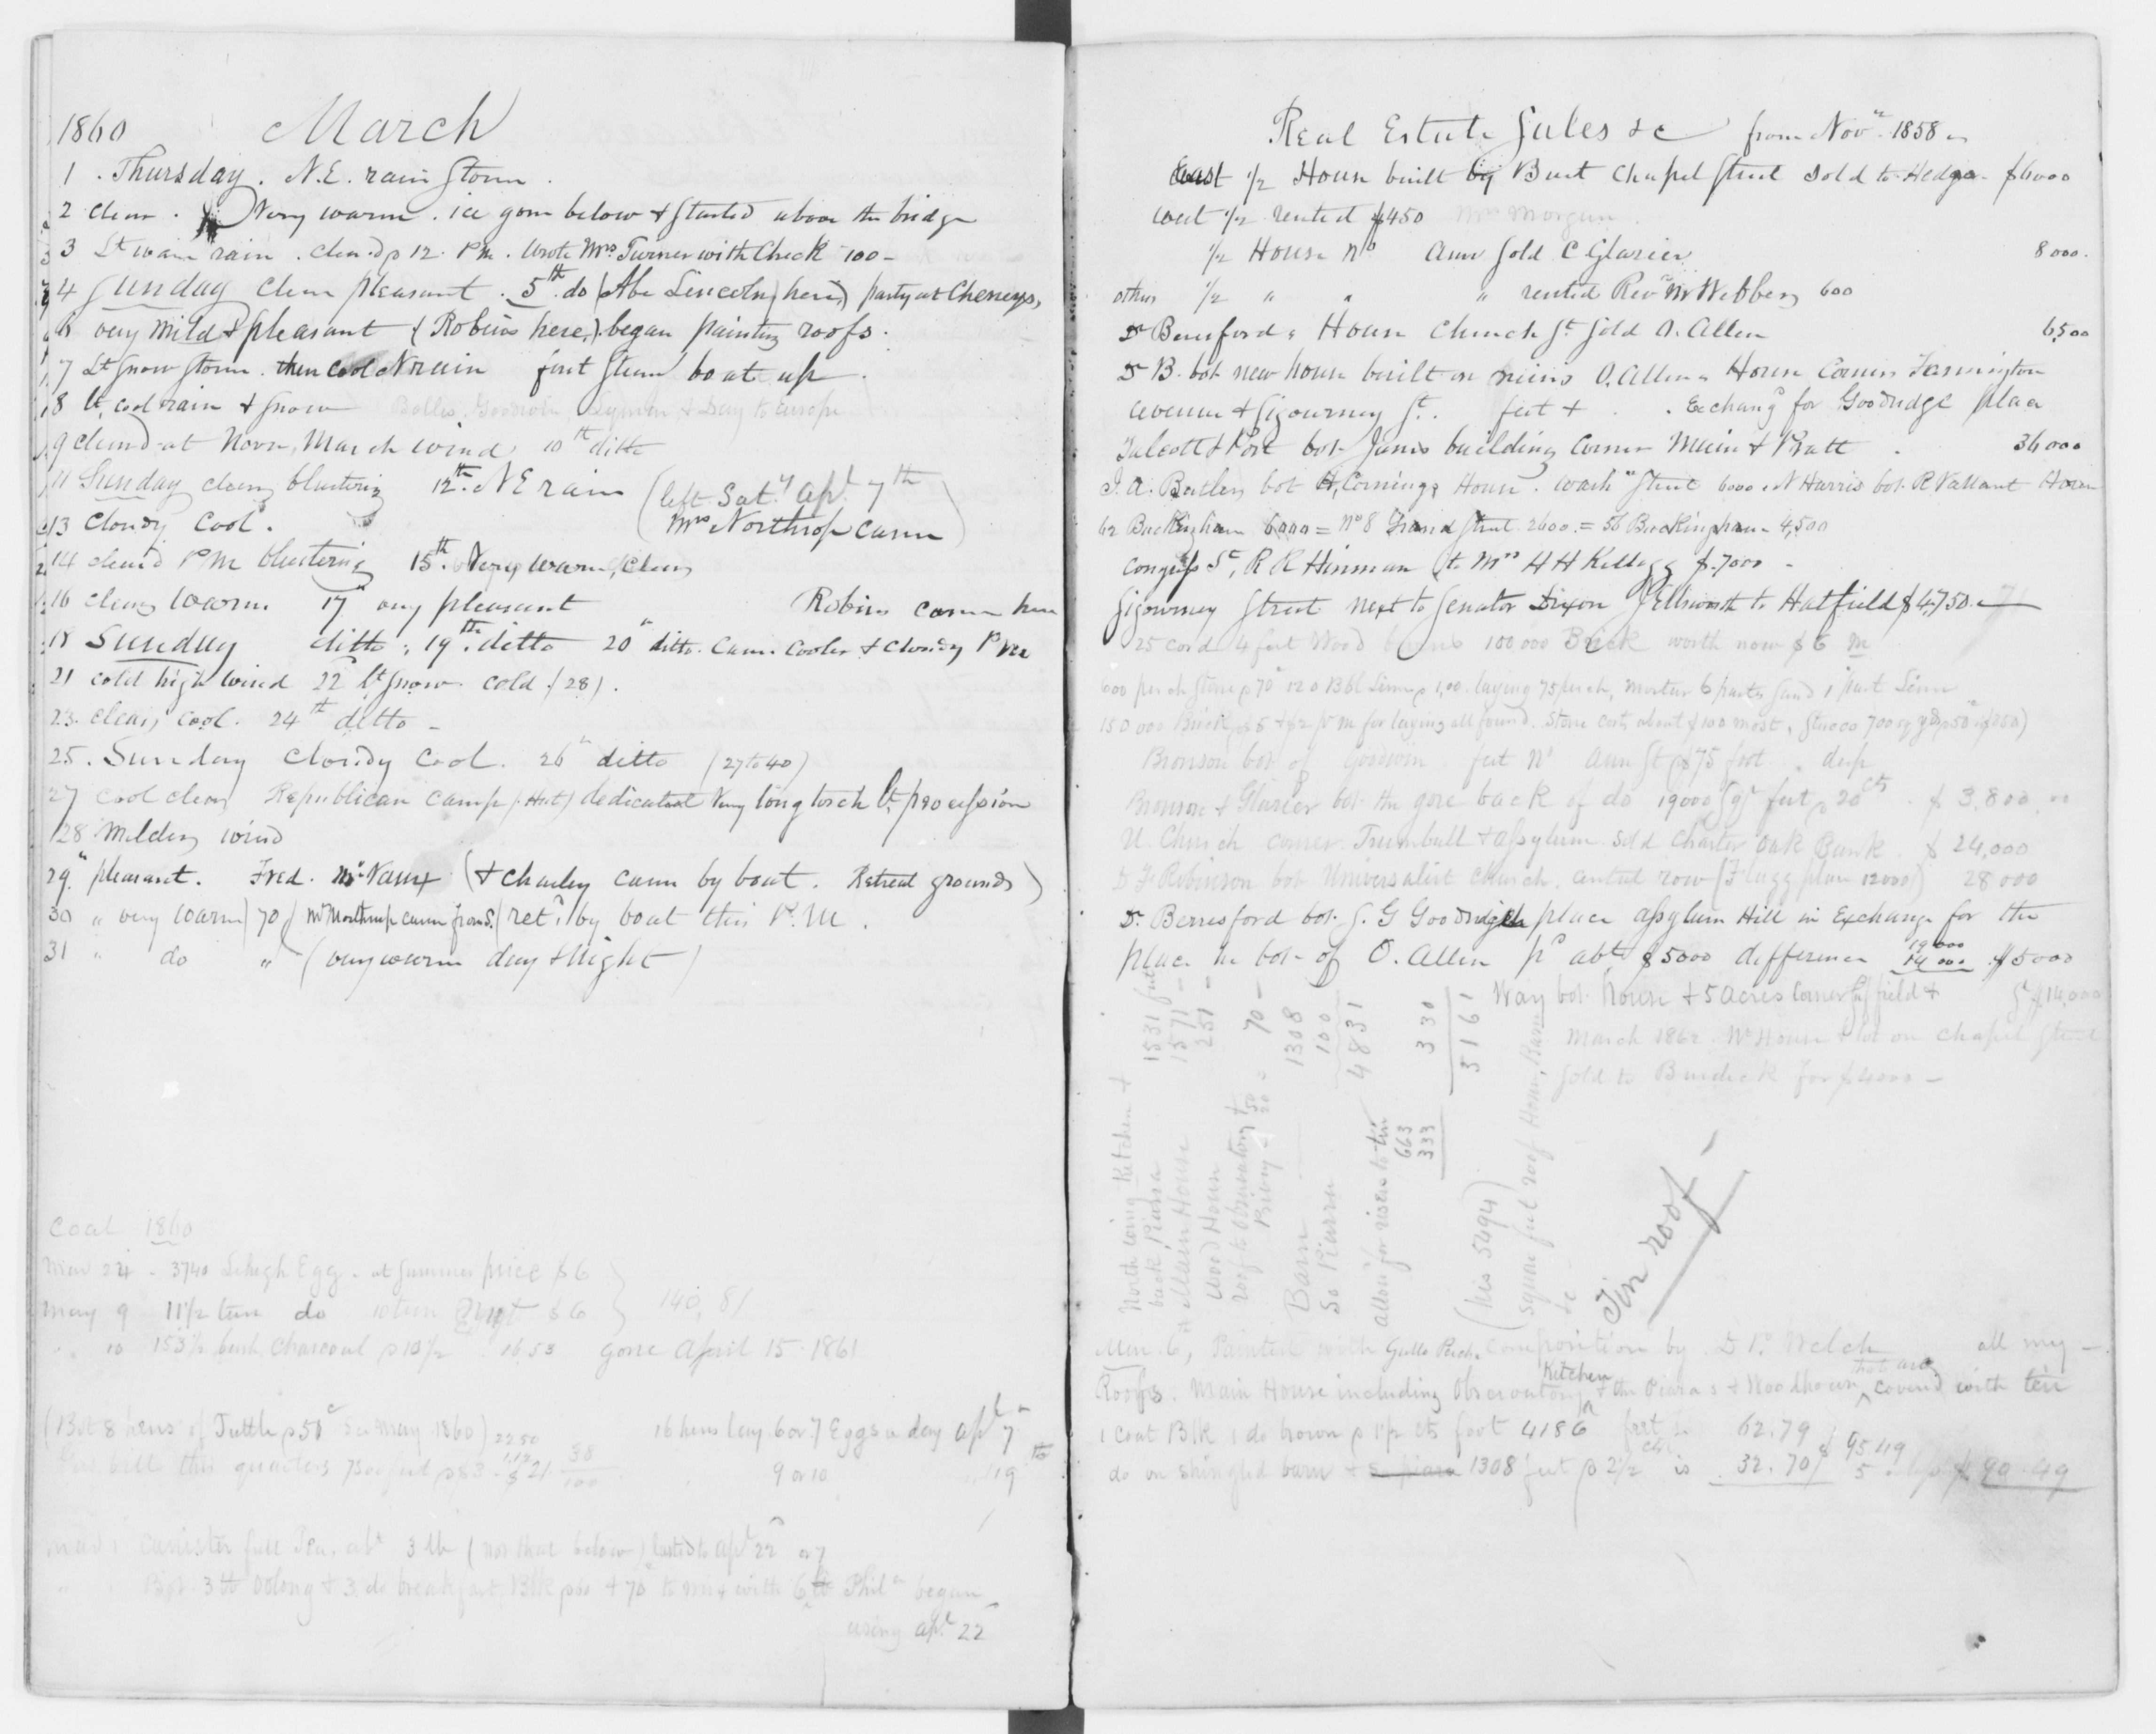 1860 March
1 . Thursday . N.E. rain Storm .
2 clear . Very warm . ice gone below & started above the bridge
3 Lt warm rain . clear'd p 12. PM . Wrote Mrs. Turner with Check 100 -
4 Sunday clear pleasant . 5th do (Abe Lincoln here) party at Cheneys,
6 very mild & pleasant (Robins here,) began painting roofs .
7 Lt Snow Storm . then cool N rain first Steam boat up .
8 Lt. cool rain & Snow Bolles, Goodwin, Lyman & Day to Europe
9 cleard at Noon, March wind 10th ditto
11 Sunday clear blustering 12th. N E rain (left Saty. Apl. 7th
13 Cloudy Cool . Mrs Northrop came)
14 cleard PM blustering 15th. Very warm, clear
16 clear warm 17" any pleasant Robins came here
18 Sunday ditto ; 19th. ditto 20" ditto. Came Cooler & Cloudy P M
21 cold high wind 22 Lt Snow cold (28) .
23. clear, cool . 24th ditto -
25 . Sunday Cloudy Cool . 26" ditto (27 to 40)
27 cool clear Republican camp (Hut) dedicated Very long torch Lt. procession
28 Milder wind
29" pleasant . Fred . Mr. Vaux (& Charley came by boat . Retreat grounds)
30 " very warm (70) Mr Northrup came from S. (retd. by boat this P.M .
31 " do " (very warm day & Night)
Coal 1860
Mar 24 - 3740 Lehigh Egg - at Summer price $6
May 9 11 1/2 tun do 10 tun $6 140, 81
" 10 153 1/2 bush Charcoal p 10 1/2 16,53 gone April 15 - 1861
(Bot 8 hens of Tuttle p 50c See May 1860) 16 hens lay 6 or 7 Eggs a day Apl 7"
Gas bill this quarter 7500 feet p $3 - 22 50 1.12 $21 38/100 9 or 10 19th
Mar 1 Canister full Tea abt 3 lb (not that below) lasted to Apl 22
" Bot 3 lb Oolong & 3 do breakfast Blk p 60 & 70c to mix with 6 lb Phila began
using Apl. 22
Real Estate Sales &c from Novr. 1858
East 1/2 House built by Burt Chapel Street sold to Hedge $6000
West 1/2 rented $450 Mrs Morgan
1/2 House No Ann Sold C Glazier 8000.
other 1/2 " " " rented Revd Mr Webber 600
Dr Beresford's House Church St. Sold O. Allen 6500
Dr B. bot new house built on ruins O. Allens House Corner Farmington
Avenue & Sigourney St. feet & . Exchangd for Goodridge place
Talcott & Post bot James building Corner Main & Pratt . 36000
J. A. Butler bot H, Corning's House . Wash" Street 6000 N Harris bot R Vallant House
62 Buckingham 6000 = No 8 Grand Street 2600. = 56 Buckingham 4,500
Congress St, R R Hinman to Mrs H H Kellogg $.7000 -
Sigourney Street next to Senator Dixon J Ellsworth to Hatfield $4,750.
25 cord 4 feet Wood burns 100 000 Brick worth now $6 M
600 perch Stone p 70c 120 Bbl Lime p 1,00. laying 75 perch, Mortar 6 parts Sand 1 part Lime
150 000 Brick p $5 & $2 pr M for laying all found . Stone Cost about $100 most, Stucco 700 sq yds p 50c
Bronson bot of Goodwin feet No Ann St $75 foot . deep
Bronson & Glazier bot the gore back of do 19000 Sqr feet p 20cts . $ 3,800.00
U. Church corner Trumbull & Asylum Sold Charter Oak Bank . $ 24,000
D F Robinson bot Universalist Church, Central row (Flagg plan 12000) 28 000
Dr. Berresford bot. S. G Goodridge place Asylum Hill in Exchange for the
place he bot - of O. Allen pd abt $5000 difference 19 000 14 000 $5000
Way bot house & 5 Acres Corner & St $14,000
March 1862 Wt House & lot on Chapel Street
Sold to Burdick for $4000 -
North wing Kitchen & back Piazza 1531 feet
Main House 1571 -
Wood House 251 -
roof & Observatory &
Privy 50 20 = 70 -
Barn 1308
So Piazza 100
4831
allow for risers to tin 330
663
333
5161
(his 5494)
Square feet roof House, Barn
&c
Tin roof
Mar. 6, Painted with Gutta Perch. Composition by D P. Welch all my -
Roofs . Main House including Observatory Kitchen & the Piazzas & Woodhouse that are cover'd with tin
1 Coat Blk 1 do brown p 1 1/2 cts foot 4186 feet is 62.79 $ 95.49
do on shingled barn & So piazza 1308 feet p 2 1/2 cts is 32.70 5 . $ 90.49